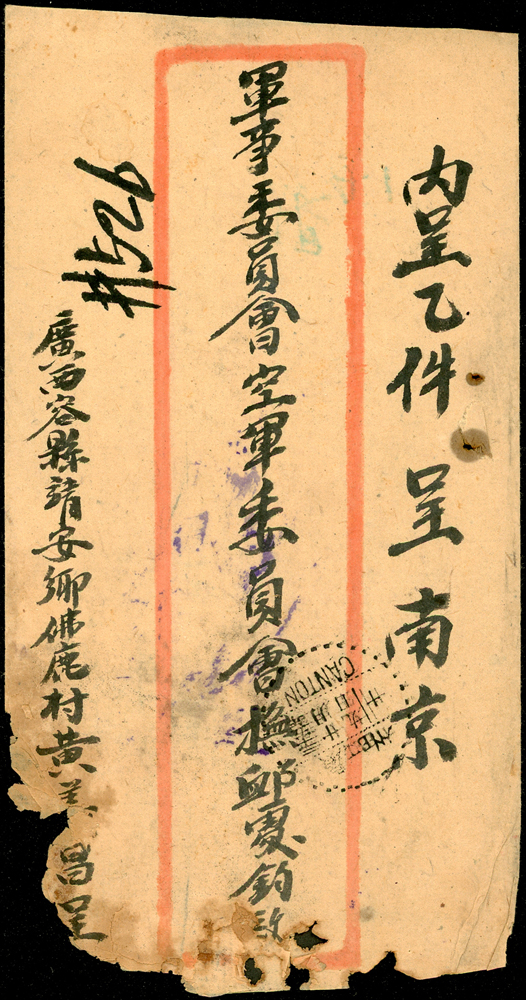 内呈乙件 呈 南京
軍事委員會空軍委員會撫卹處鈞啟
廣西容縣靖安鄉佛鹿村黄昌呈
#526
CANTON